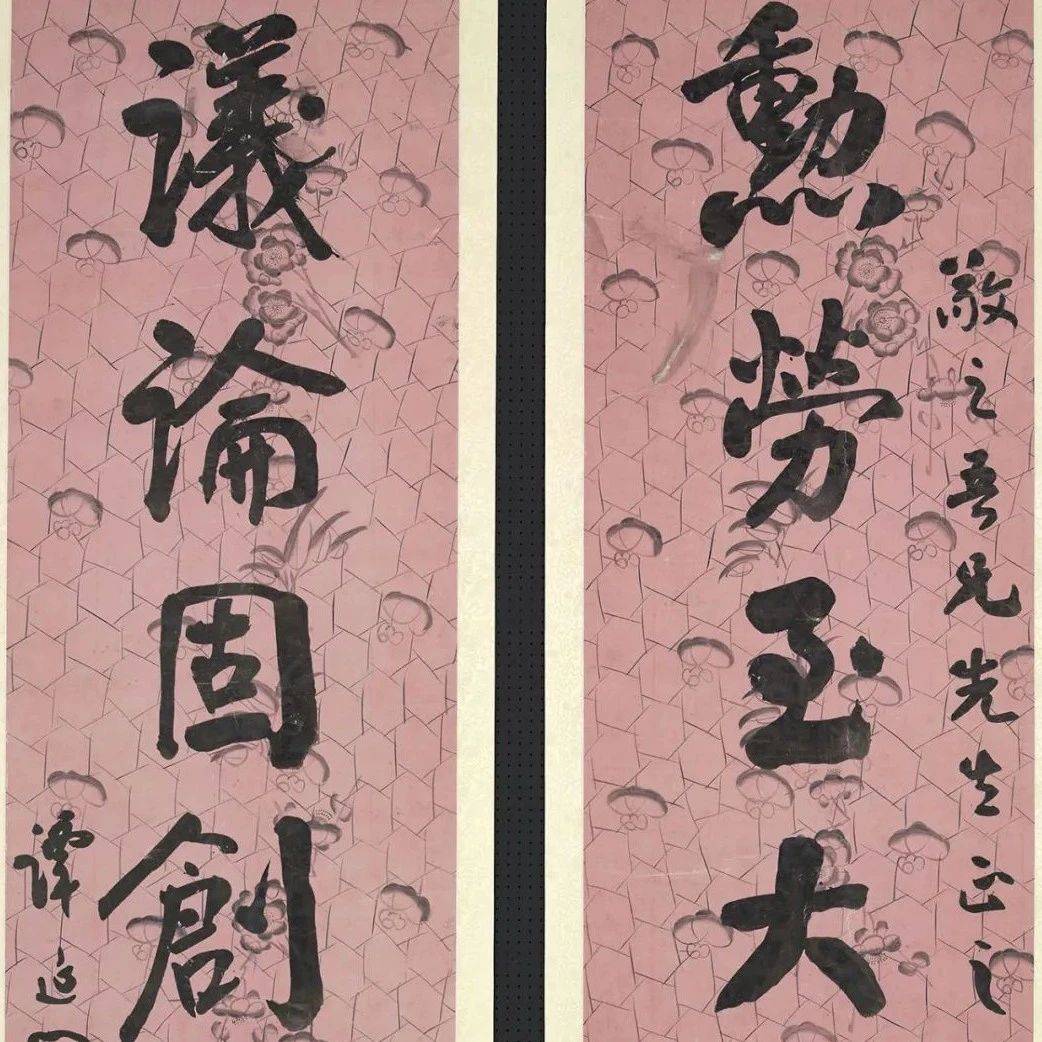 敬之吾兄先生正之
勳勞至大
議論固創
譚延